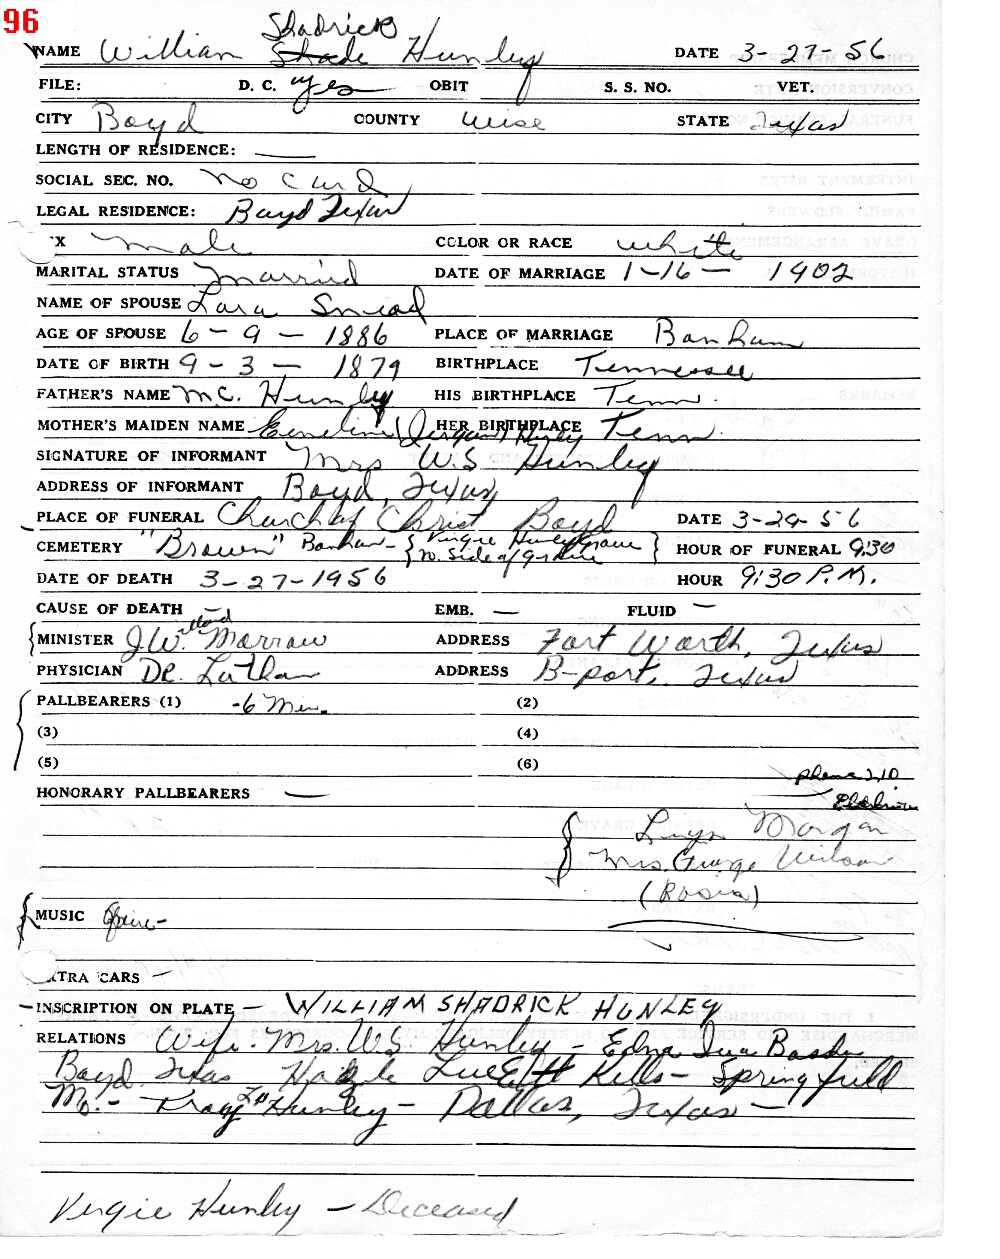 96
Shadrick
NAME William Shade Hunley DATE 3-27-56
FILE: D. C. yes OBIT S. S. NO. VET.
CITY Boyd COUNTY Wise STATE Texas
LENGTH OF RESIDENCE: —
SOCIAL SEC. NO. no Card
LEGAL RESIDENCE: Boyd Texas
X male COLOR OR RACE white
MARITAL STATUS Married DATE OF MARRIAGE 1-16-1902
NAME OF SPOUSE Lara Snead
AGE OF SPOUSE 6-9-1886 PLACE OF MARRIAGE Bonham
DATE OF BIRTH 9-3-1879 BIRTHPLACE Tennessee
FATHER'S NAME Mc. Hunley HIS BIRTHPLACE Tenn.
MOTHER'S MAIDEN NAME Emeline Hunley HER BIRTHPLACE Tenn.
SIGNATURE OF INFORMANT Mrs W.S Hunley
ADDRESS OF INFORMANT Boyd, Texas
PLACE OF FUNERAL Church of Christ Boyd DATE 3-29-56
CEMETERY "Brown" Bonham - { Virgie Hunley Grave } HOUR OF FUNERAL 9:30
N. Side of grave
DATE OF DEATH 3-27-1956 HOUR 9:30 P.M.
CAUSE OF DEATH — EMB. — FLUID —
MINISTER J.W. Morrow ADDRESS Fort Worth, Texas
PHYSICIAN Dr. Latham ADDRESS B-port, Texas
PALLBEARERS (1) -6 Men. (2)
(3) (4)
(5) (6)
phone 210
HONORARY PALLBEARERS —
Morgan
Mrs. George Wilson
(Rosia)
MUSIC
XTRA CARS —
INSCRIPTION ON PLATE - WILLIAM SHADRICK HUNLEY
RELATIONS Wife. Mrs. W.S. Hunley - Edna
Boyd Texas Lue Kells - Springfield
Mo. - Hunley - Dallas, Texas -
Virgie Hunley - Deceased